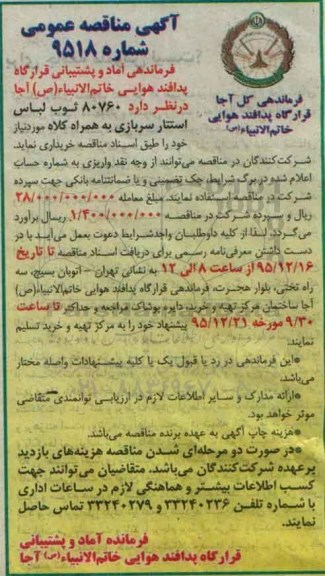 آگهی مناقصه عمومی
شماره ۹۵۱۸
فرماندهی کل آجا
قرارگاه پدافند هوایی
خاتم‌الانبیاء(ص)
فرماندهی آماد و پشتیبانی قرارگاه
پدافند هوایی خاتم‌الانبیاء(ص) آجا
درنظر دارد ۸۰۷۶۰ ثوب لباس
استتار سربازی به همراه کلاه موردنیاز
خود را طبق اسناد مناقصه خریداری نماید.
شرکت‌کنندگان در مناقصه می‌توانند از وجه نقد واریزی به شماره حساب
اعلام شده در برگ شرایط، چک تضمینی و یا ضمانتنامه بانکی جهت سپرده
شرکت در مناقصه استفاده نمایند. مبلغ معامله ۲۸/۰۰۰/۰۰۰/۰۰۰
ریال و سپرده شرکت در مناقصه ۱/۴۰۰/۰۰۰/۰۰۰ ریال برآورد
می‌گردد. لذا از کلیه داوطلبان واجدشرایط دعوت بعمل می‌آید با در
دست داشتن معرفی‌نامه رسمی برای دریافت اسناد مناقصه تا تاریخ
۹۵/۱۲/۱۶ از ساعت ۸ الی ۱۲ به نشانی تهران – اتوبان بسیج، سه
راه تختی، بلوار هجرت، فرماندهی قرارگاه پدافند هوایی خاتم‌الانبیاء(ص)
آجا ساختمان مرکز تهیه و خرید، دایره پوشاک مراجعه و حداکثر تا ساعت
۹/۳۰ مورخه ۹۵/۱۲/۲۱ پیشنهاد خود را به مرکز تهیه و خرید تسلیم
نمایند.
*این فرماندهی در رد یا قبول یک یا کلیه پیشنهادات واصله مختار
می‌باشد.
*ارائه مدارک و سایر اطلاعات لازم در ارزیابی توانمندی متقاضی
موثر خواهد بود.
*هزینه چاپ آگهی به عهده برنده مناقصه می‌باشد.
*در صورت دو مرحله‌ای شدن مناقصه هزینه‌های بازدید
برعهده شرکت‌کنندگان می‌باشد. متقاضیان می‌توانند جهت
کسب اطلاعات بیشتر و هماهنگی لازم در ساعات اداری
با شماره تلفن ۳۳۲۴۰۲۳۶ و ۳۳۲۴۰۲۷۹ تماس حاصل
نمایند.
فرمانده آماد و پشتیبانی
قرارگاه پدافند هوایی خاتم‌الانبیاء(ص) آجا